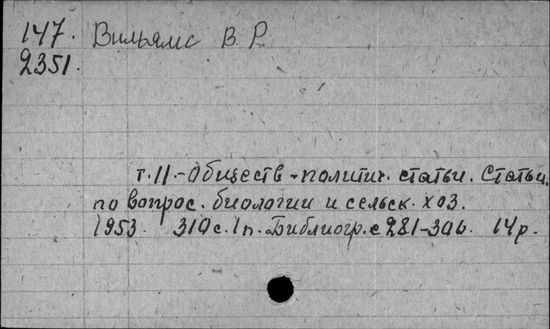 147. Вильямс В. Р.
2351.
т.11.-Обществ-политич. статьи. Статьи
по вопрос. биологии и сельск. хоз.
1953. 310с. 1п. Библиогр. с 281-306. 14р.